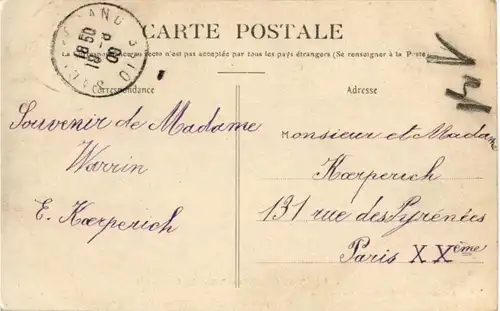 CARTE POSTALE
n'est pas acceptée par tous les pays étrangers (Se renseigner à la Poste)
Correspondance
Adresse
Souvenir de Madame
Warrin
E. Kœrperich
Monsieur et Madame
Kœrperich
131 rue des Pyrénées
Paris XXème